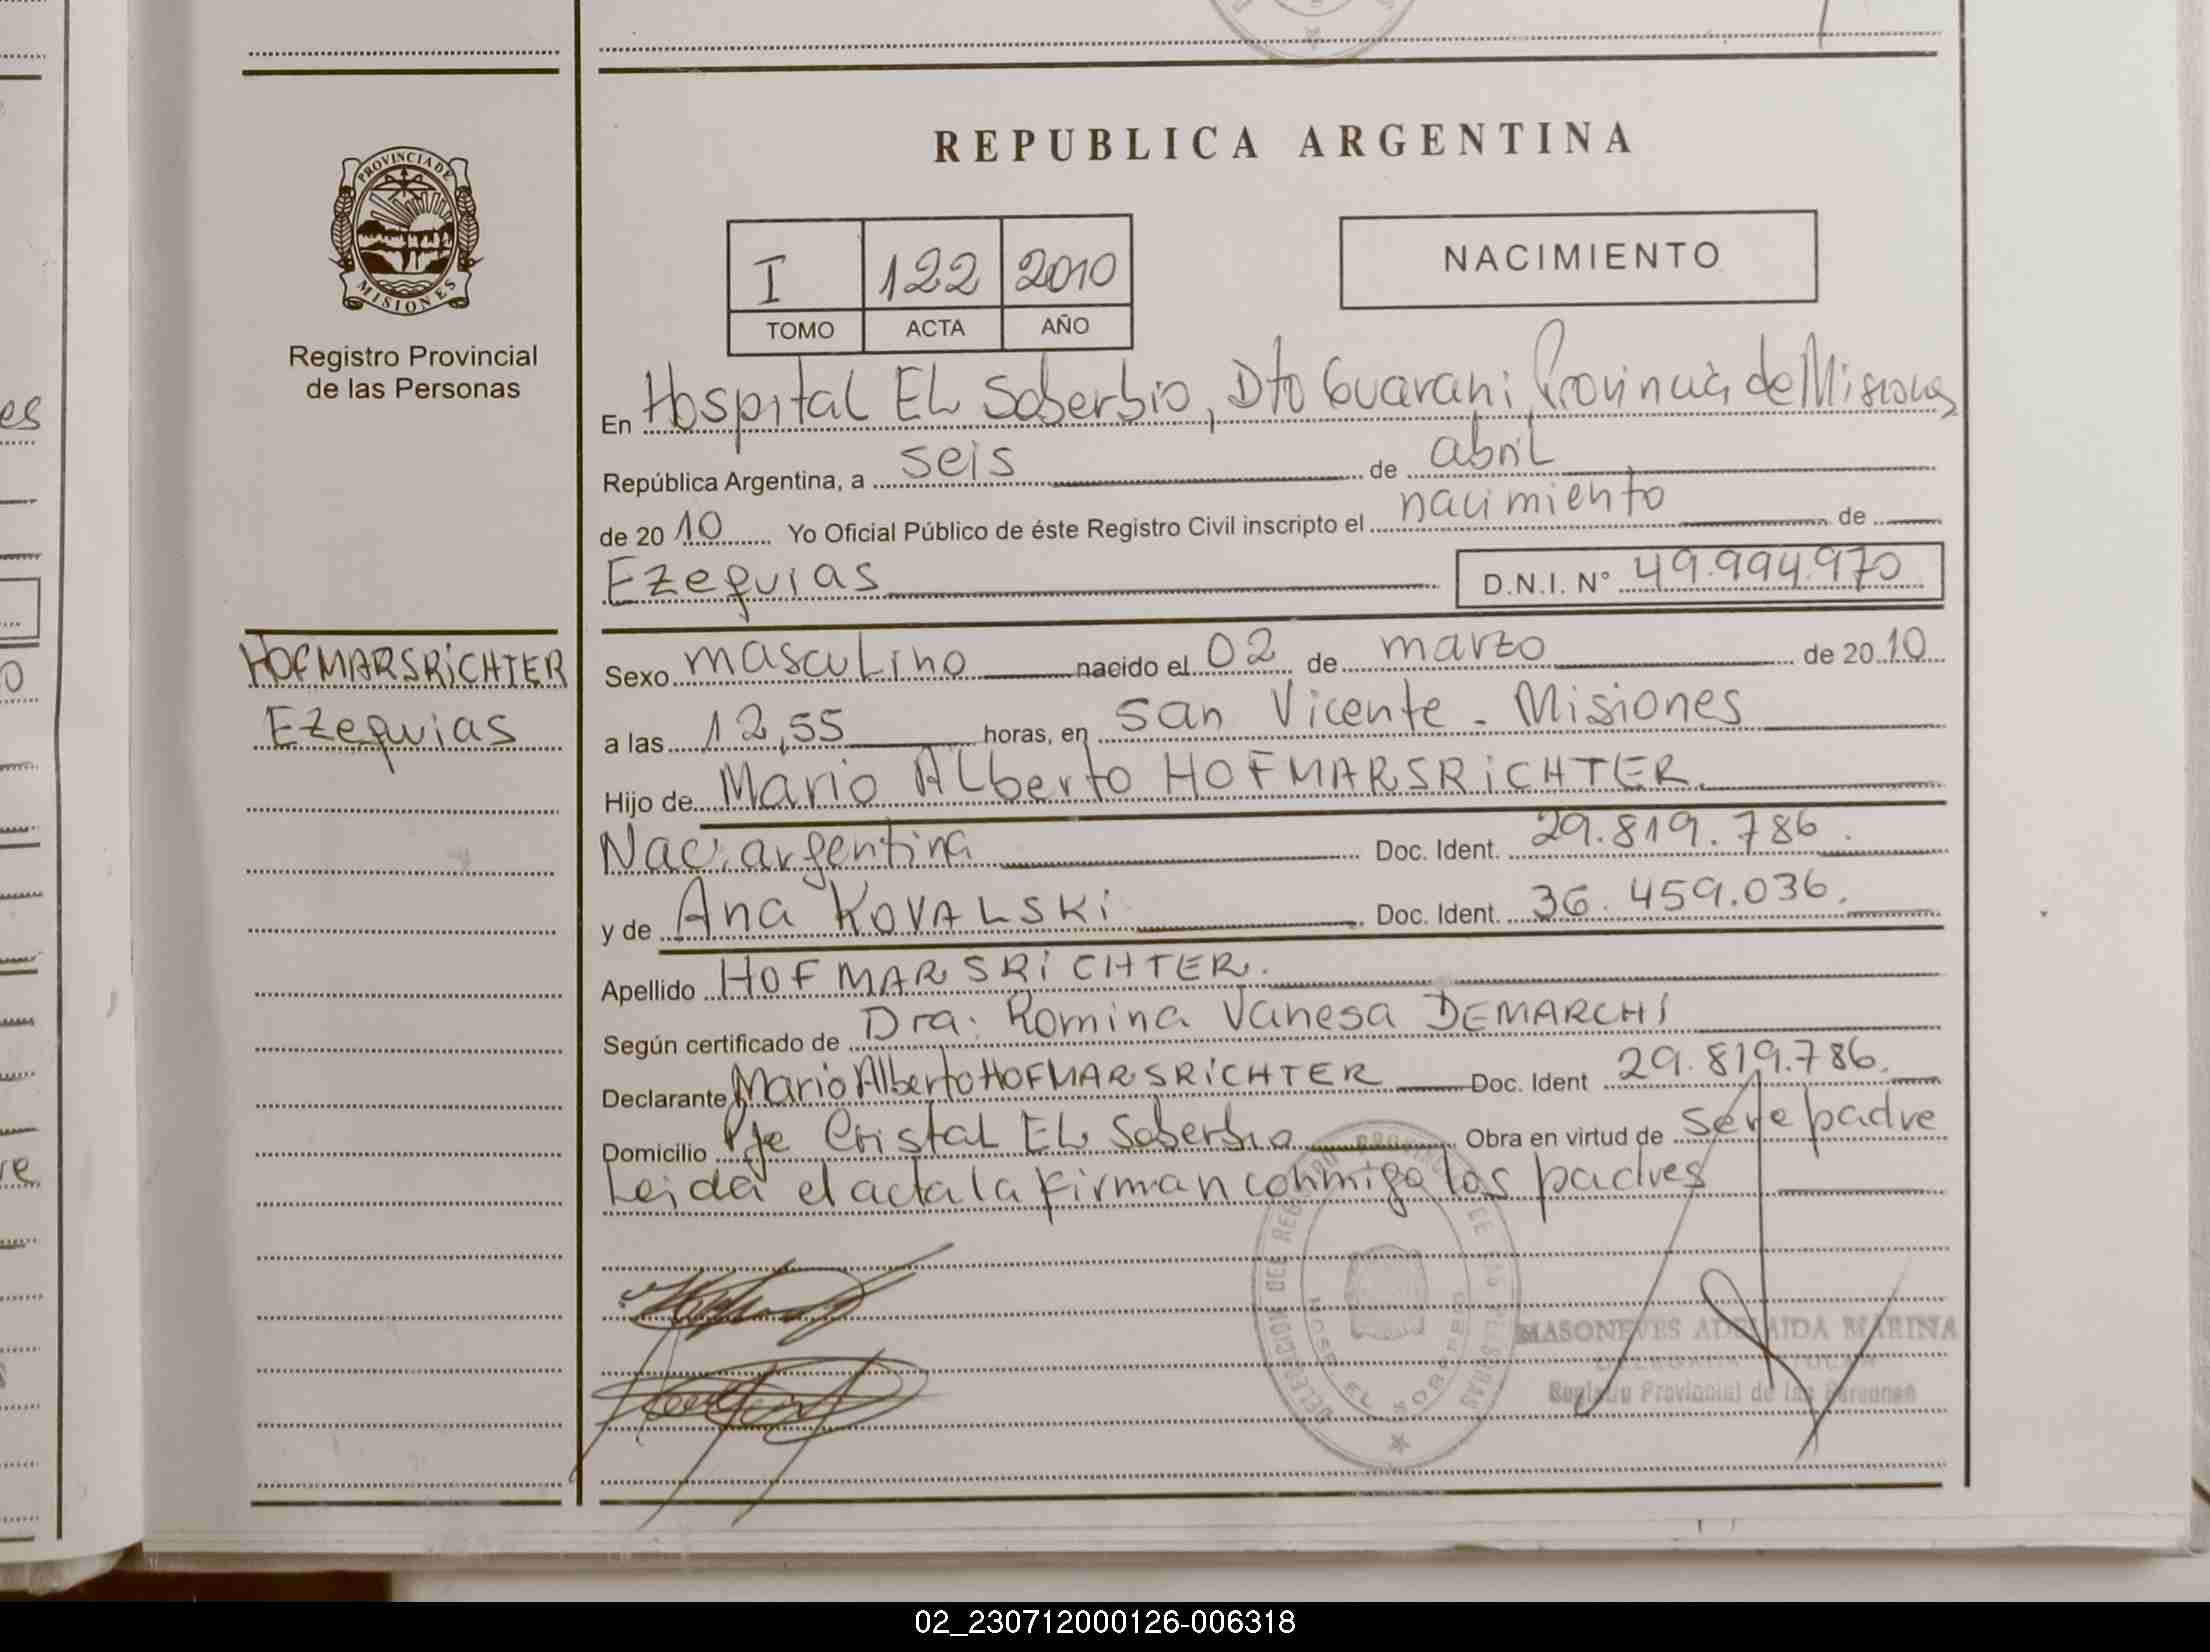 PROVINCIA DE
MISIONES
Registro Provincial
de las Personas
HOFMARSRICHTER
Ezequias
REPUBLICA ARGENTINA
I 122 2010
TOMO ACTA AÑO
NACIMIENTO
En Hospital El Soberbio, Dto Guarani, Provincia de Misiones
República Argentina, a seis de abril
de 2010 Yo Oficial Público de éste Registro Civil inscripto el nacimiento de
Ezequias D.N.I. N° 49.994.970
Sexo masculino nacido el 02 de marzo de 2010
a las 12,55 horas, en San Vicente - Misiones
Hijo de Mario Alberto HOFMARSRICHTER.
Nac. argentina Doc. Ident. 29.819.786.
y de Ana KOVALSKI Doc. Ident. 36.459.036.
Apellido HOFMARSRICHTER.
Según certificado de Dra. Romina Vanesa DEMARCHI
Declarante Mario Alberto HOFMARSRICHTER Doc. Ident 29.819.786.
Domicilio Pje Cristal El Soberbio Obra en virtud de ser el padre
Leida el acta la firman conmigo los padres
MASONEVES ADELAIDA MARINA
DELEGADA TITULAR
Registro Provincial de las Personas
02_230712000126-006318